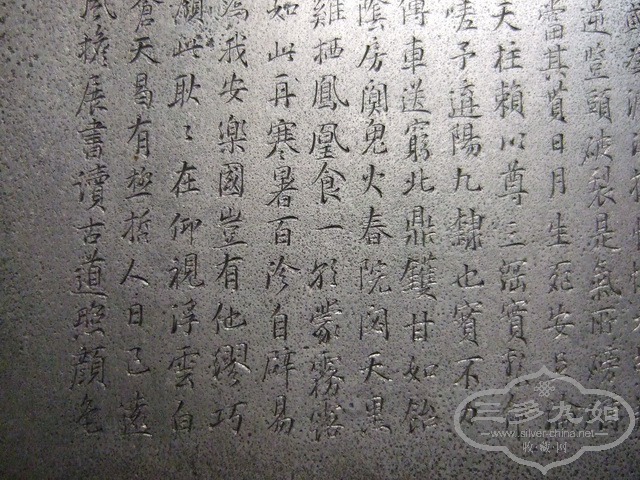 逆豎頭破裂是氣所磅
當其貫日月生死安足
天柱賴以尊三綱實
嗟予遘陽九隸也實不力
傳車送窮北鼎鑊甘如飴
陰房闃鬼火春院閟天黑
雞栖鳳凰食一朝蒙霧露
如此再寒暑百沴自辟易
為我安樂國豈有他繆巧
顧此耿〻在仰視浮雲白
蒼天曷有極哲人日已遠
風檐展書讀古道照顏色
三多九如
www.silver.china.net
收藏网